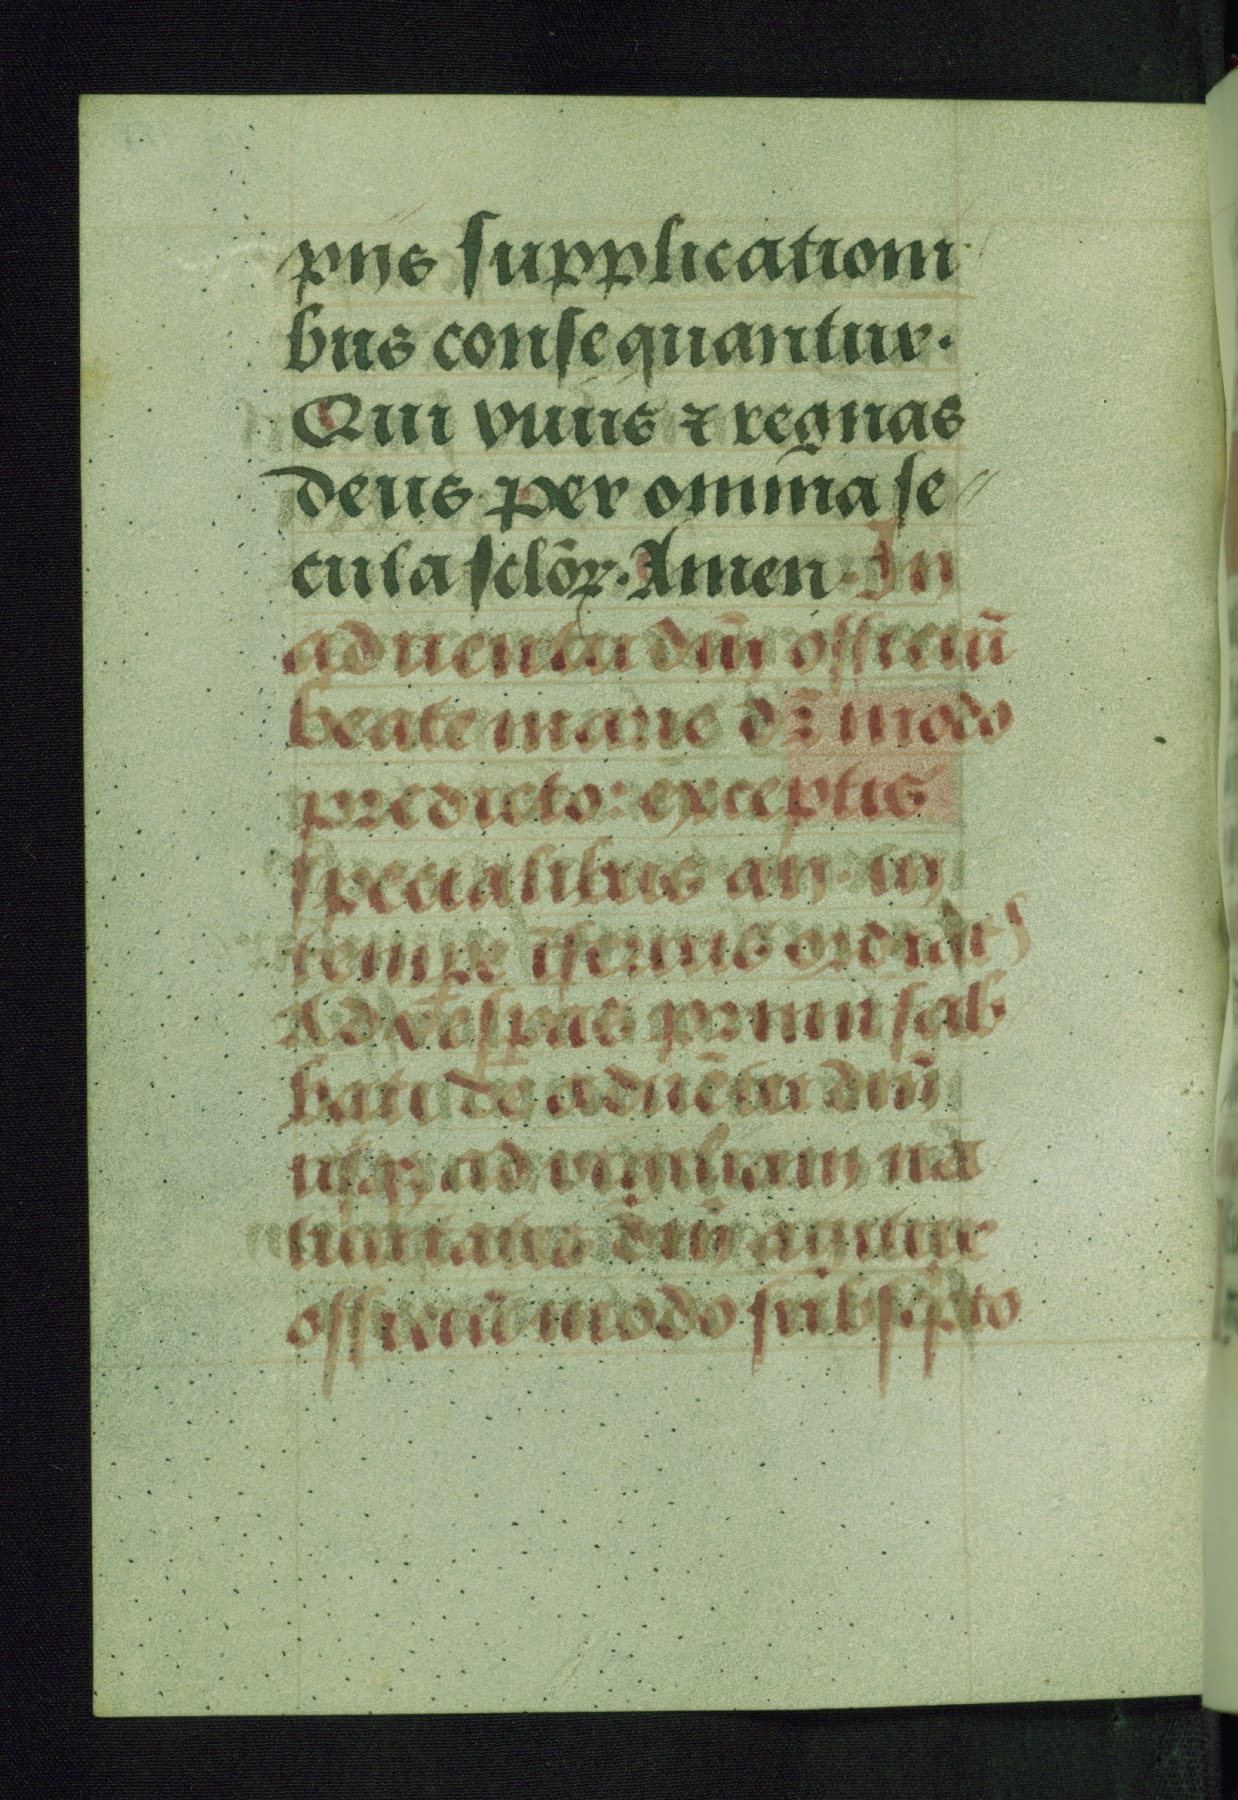 pijs supplicationi
bus consequantur.
Qui viuis ⁊ regnas
deus per omnia se
cula sclōꝝ. Amen. In
aduentu dūi officiū
beate marie dꝛ̄ modo
predicto: exceptis
specialibus an. in
tempꝛe īferius ordīat
Ad vesꝑas primi sab
bati de aduētu dūi
usqꝫ ad vigiliam na
tiuitatis dūi agitur
officiū modo subscpto